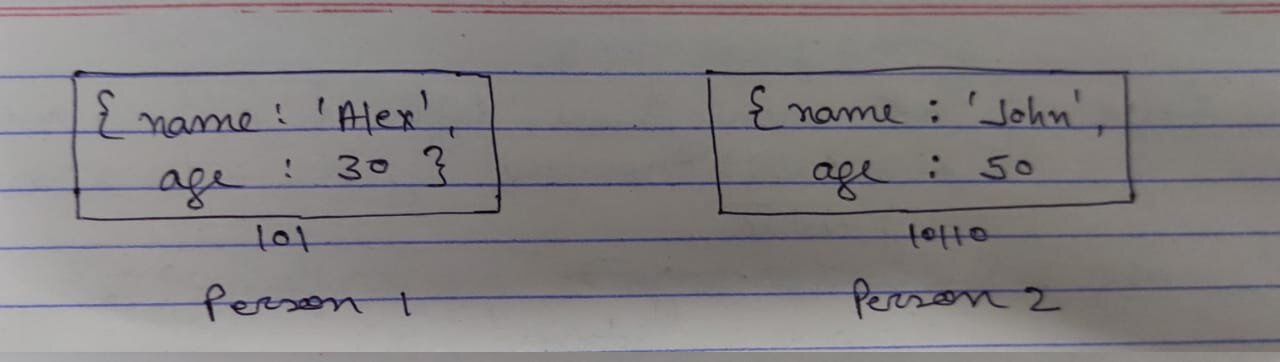 { name : 'Alex',
age : 30 }
101
Person 1
{ name : 'John',
age : 50
10110
Person 2